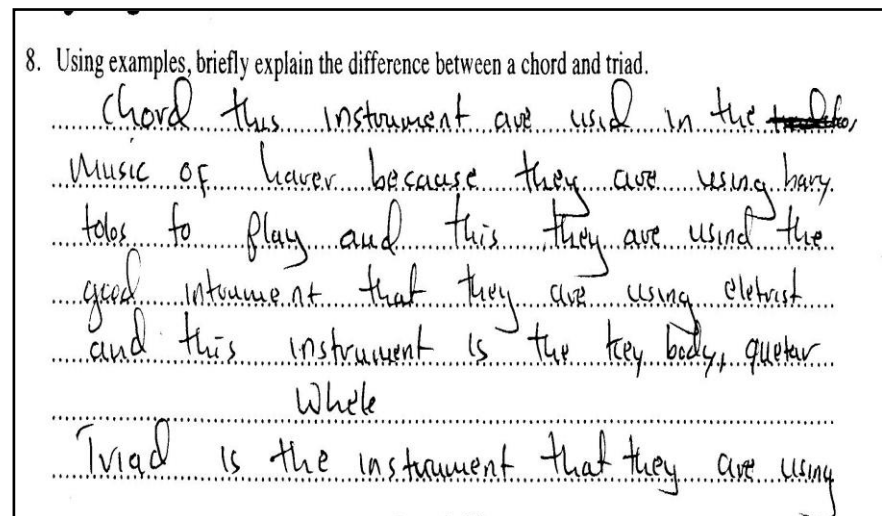 8. Using examples, briefly explain the difference between a chord and triad.
Chord this instrument are usid in the
Music of haver because they are using hary
tolos to play and this they are usind the
good intrument that they are using eletrist
and this instrument is the key body, quetar
Whele
Triad is the instrument that they are using